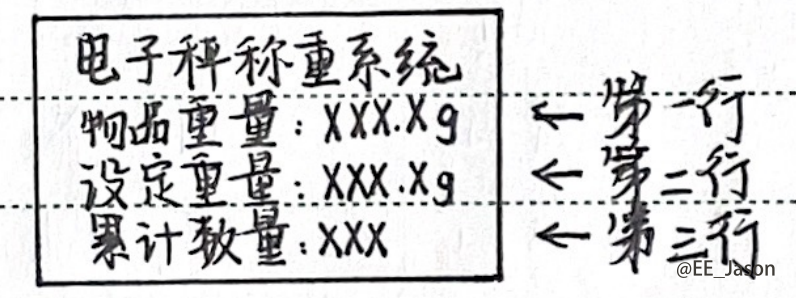 电子秤称重系统
物品重量:XXX.Xg ← 第一行
设定重量:XXX.Xg ← 第二行
累计数量:XXX ← 第三行
@EE_Jason